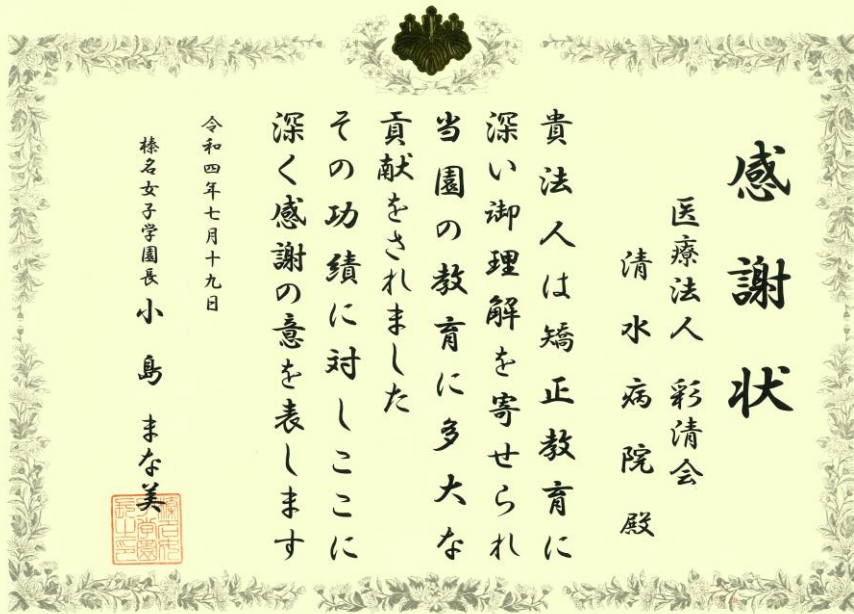 感謝状
医療法人 彩清会
清水病院 殿
貴法人は矯正教育に
深い御理解を寄せられ
当園の教育に多大な
貢献をされました
その功績に対しここに
深く感謝の意を表します
令和四年七月十九日
榛名女子学園長 小島 まな美